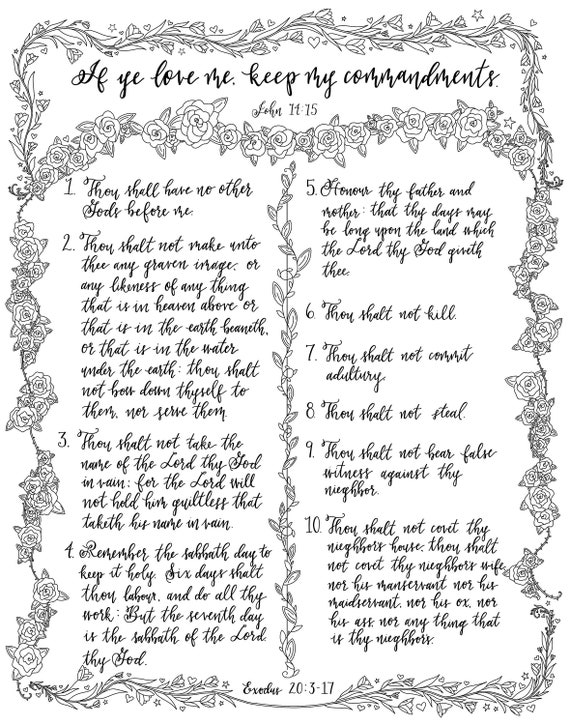 If ye love me, keep my commandments.
John 14:15
1. Thou shall have no other
Gods before me.
2. Thou shalt not make unto
thee any graven image, or
any likeness of any thing
that is in heaven above or
that is in the earth beneath,
or that is in the water
under the earth: thou shalt
not bow down thyself to
them, nor serve them.
3. Thou shalt not take the
name of the Lord thy God
in vain: for the Lord will
not hold him guiltless that
taketh his name in vain.
4. Remember the sabbath day to
keep it holy. Six days shalt
thou labour, and do all thy
work: But the seventh day
is the sabbath of the Lord
thy God.
5. Honour thy father and
mother: that thy days may
be long upon the land which
the Lord thy God giveth
thee.
6. Thou shalt not kill.
7. Thou shalt not commit
adultury.
8. Thou shalt not steal.
9. Thou shalt not bear false
witness against thy
nieghbor.
10. Thou shalt not covet thy
nieghbors house, thou shalt
not covet thy nieghbors wife,
nor his manservant nor his
maidservant, nor his ox, nor
his ass, nor any thing that
is thy nieghbors.
Exodus 20:3-17